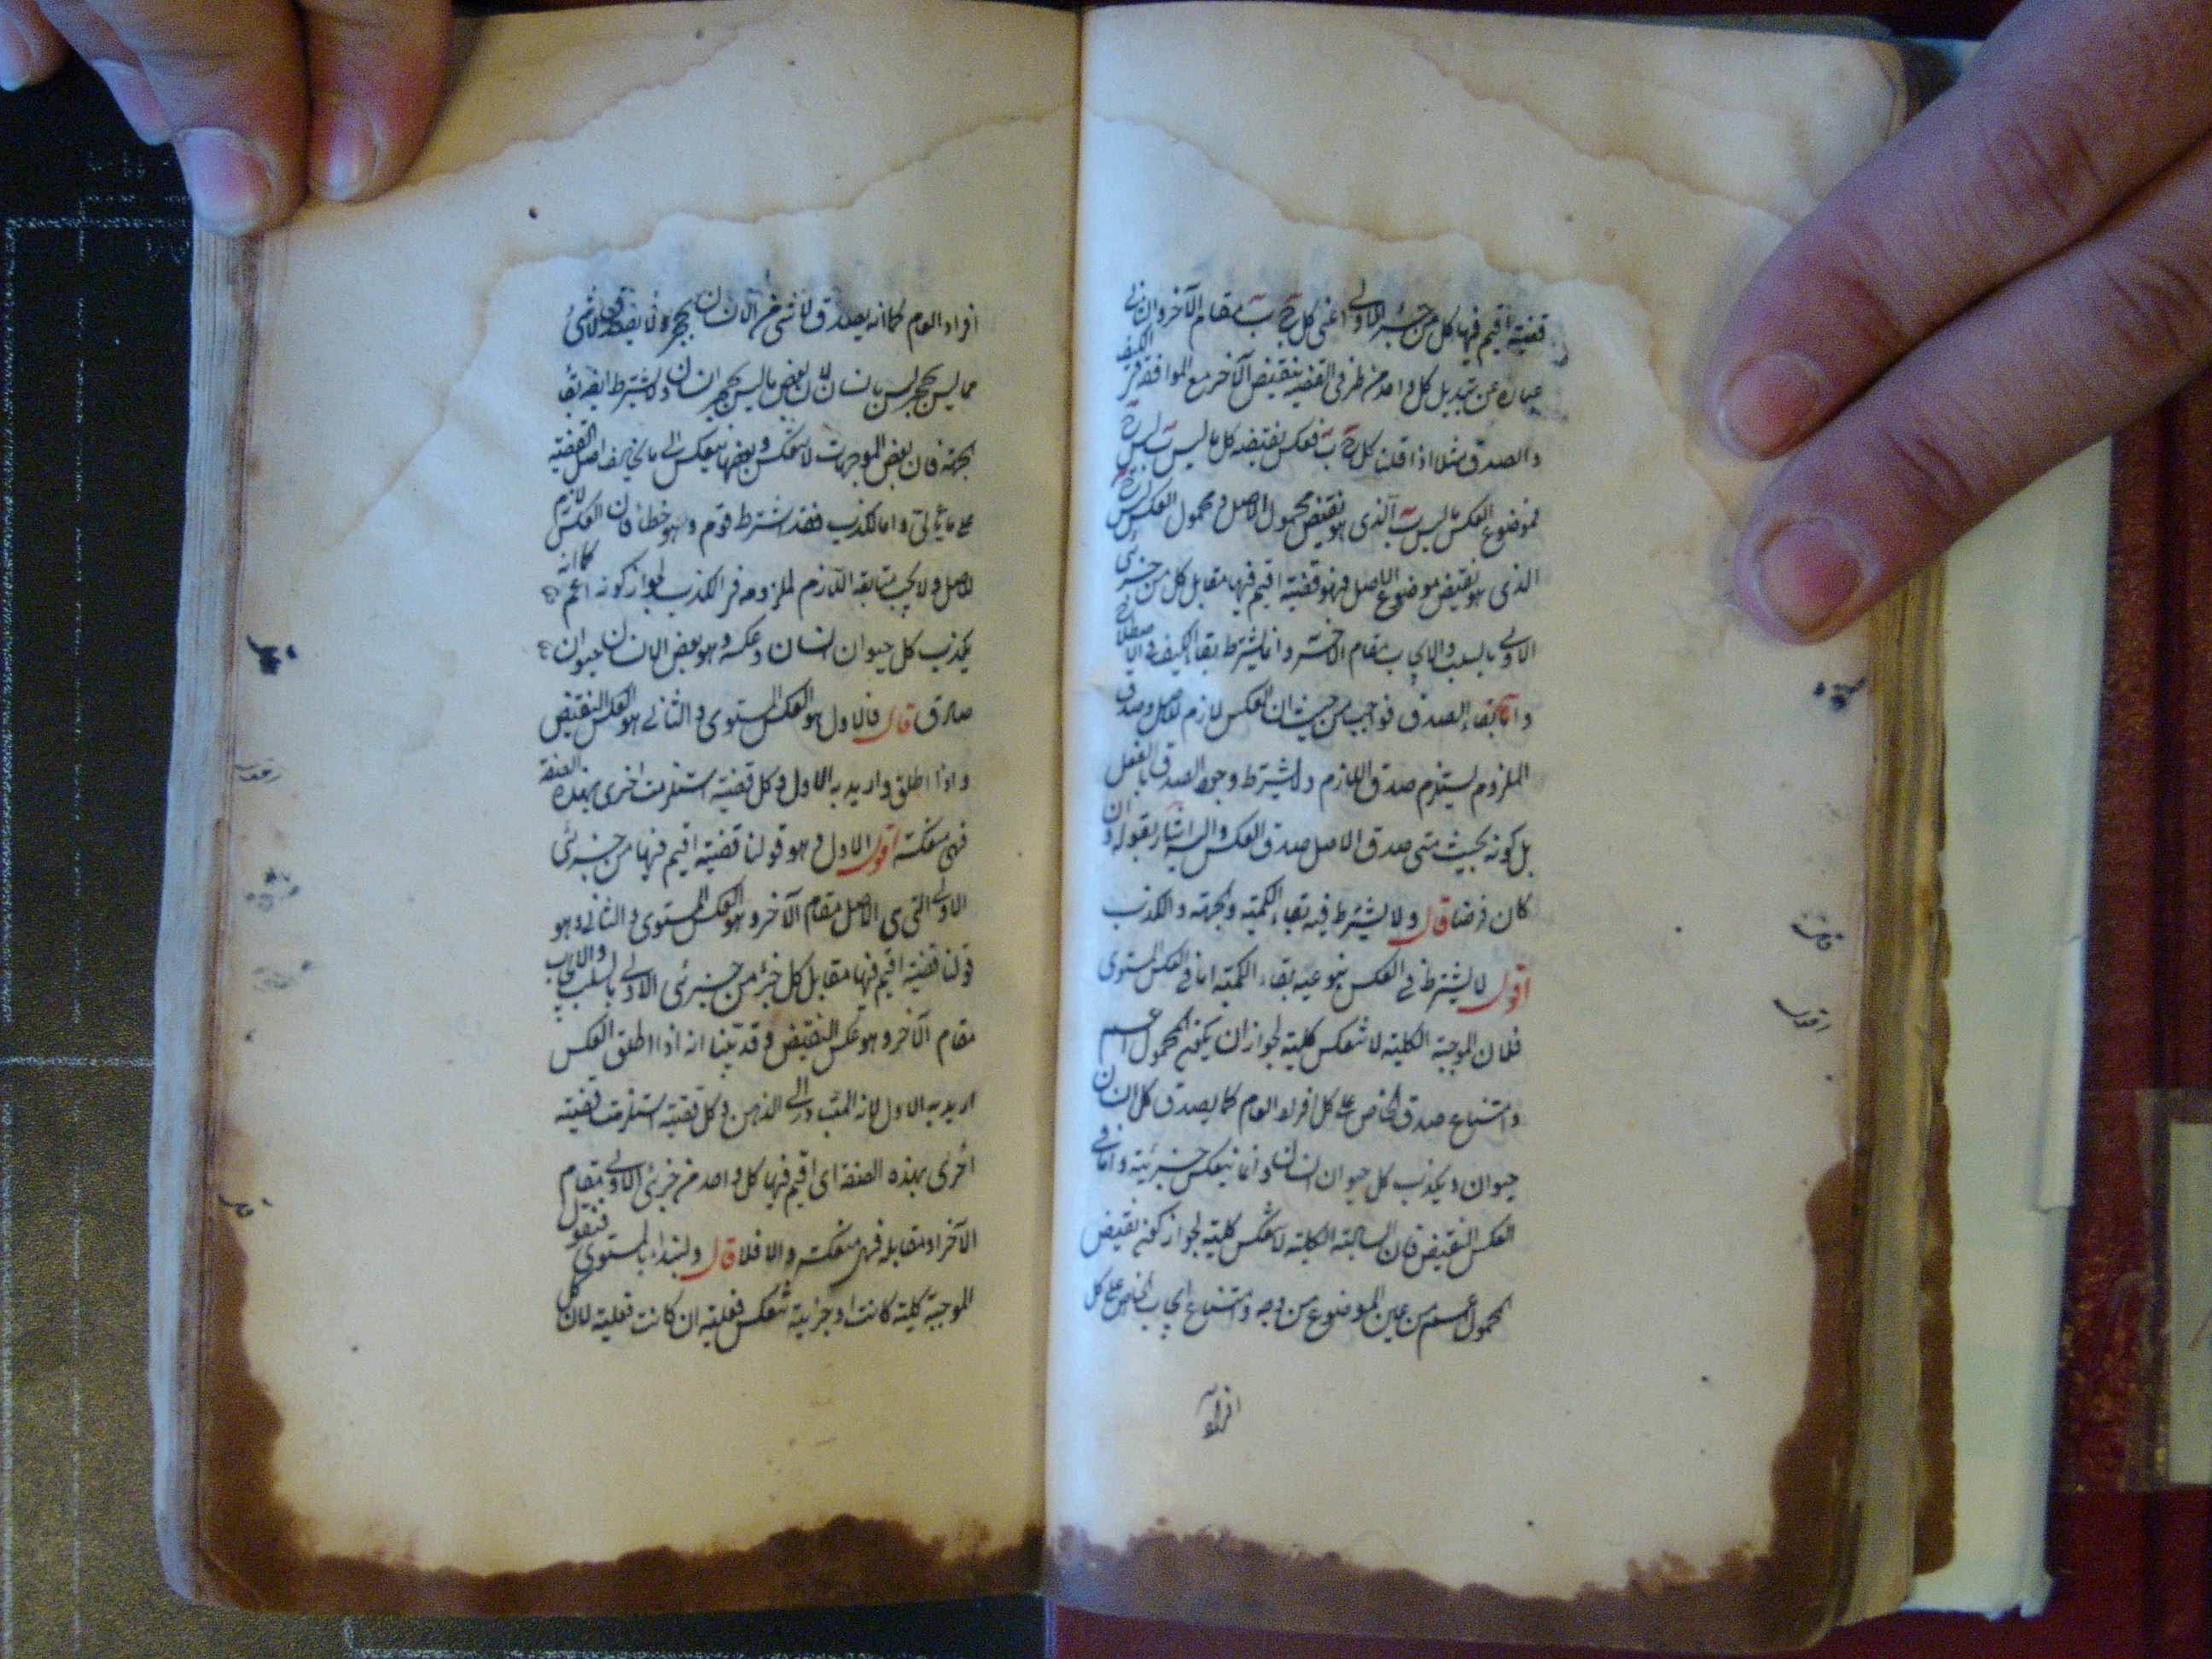 قضية اقيم فيها كل من جزئي الاولى اعنى كل ج ب مقام الآخر والثانى
عبارة عن تبديل كل واحد من طرفى القضية بنقيض الآخر مع الموافقة فى الكيف
والصدق مثلا اذا قلنا كل ج ب فعكس نقيضه كل ما ليس ب ليس ج
فموضوع العكس ما ليس ب الذى هو نقيض محمول الاصل و محمول العكس ليس ج
الذى هو نقيض موضوع الاصل فهو قضية اقيم فيها مقابل كل من جزئى
الاولى بالسلب والايجاب مقام الآخر وانما يشترط بقاء الكيف فى الاصطلاح
واما بقاء الصدق فواجب من حيث ان العكس لازم للاصل وصدق
الملزوم يستلزم صدق اللازم ولا يشترط وجود الصدق بالفعل
بل كونه بحيث متى صدق الاصل صدق العكس واليه اشار بقوله وان
كان فرضا قال ولا يشترط فيه بقاء الكمية والجهة والكذب
اقول لا يشترط فى العكس بنوعيه بقاء الكمية اما فى العكس المستوى
فلان الموجبة الكلية لا تنعكس كلية لجواز ان يكون المحمول اعم
وامتناع صدق الخاص على كل افراد العام كما يصدق كل انسان
حيوان ويكذب كل حيوان انسان وانما ينعكس جزئية واما فى
العكس النقيض فان السالبة الكلية لا تنعكس كلية لجواز كون نقيض
المحمول اعم من عين الموضوع من وجه وامتناع ايجاب الخاص على كل
افراد
افراد العام كما انه يصدق لا شىء من الانسان بحجر ولا يصدق لا شىء
مما ليس بحجر ليس بانسان لان بعض ما ليس بحجر انسان ولا يشترط ايضا بقاء
الجهة فان بعض الموجهات لا تنعكس وبعضها ينعكس الى ما يخالف اصل القضية
على ما يأتى واما الكذب فقد اشترط قوم وهو خطأ فان العكس لازم
للاصل ولا يجب متابعة اللازم لملزومه فى الكذب لجواز كونه اعم كما انه
يكذب كل حيوان انسان وعكسه وهو بعض الانسان حيوان
صادق قال فالاول هو العكس المستوى والثانى هو العكس النقيض
واذا اطلق واريد به الاول وكل قضية استلزمت اخرى بهذه الصفة
فهى منعكسة اقول الاول وهو قولنا قضية اقيم فيها من جزئى
الاولى التى هى الاصل مقام الآخر وهو العكس المستوى والثانى وهو
قولنا قضية اقيم فيها مقابل كل جزء من جزئى الاولى بالسلب والايجاب
مقام الآخر وهو عكس النقيض وقد بينا انه اذا اطلق العكس
اريد به الاول لانه المتبادر الى الذهن وكل قضية استلزمت قضية
اخرى بهذه الصفة اى اقيم فيها كل واحد من جزئى الاولى مقام
الآخر او مقابله فهى منعكسة والا فلا قال ولنبدأ بالمستوى فنقول
الموجبة كلية كانت او جزئية تنعكس فعلية ان كانت فعلية لان كل